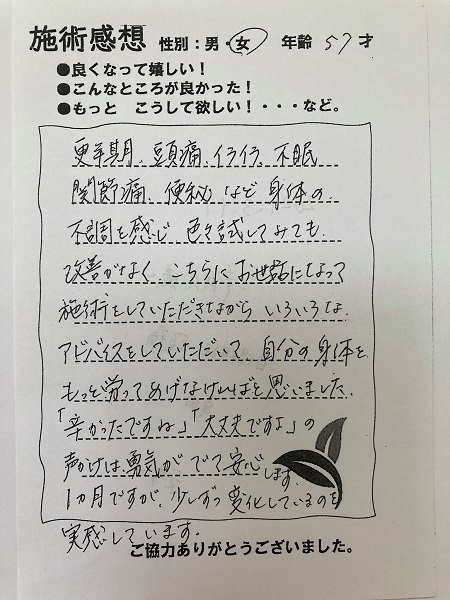 施術感想 性別：男・女 年齢 57才
●良くなって嬉しい！
●こんなところが良かった！
●もっと こうして欲しい！・・・など。
更年期、頭痛、イライラ、不眠
関節痛、便秘など身体の
不調を感じ 色々試してみても
改善がなく、こちらにお世話になって
施術をしていただきながら いろいろな
アドバイスをしていただいて、自分の身体を
もっと労ってあげなければと思いました。
「辛かったですね」「大丈夫ですよ」の
声かけは勇気がでて安心します。
1ヵ月ですが、少しずつ変化しているのを
実感しています。
ご協力ありがとうございました。